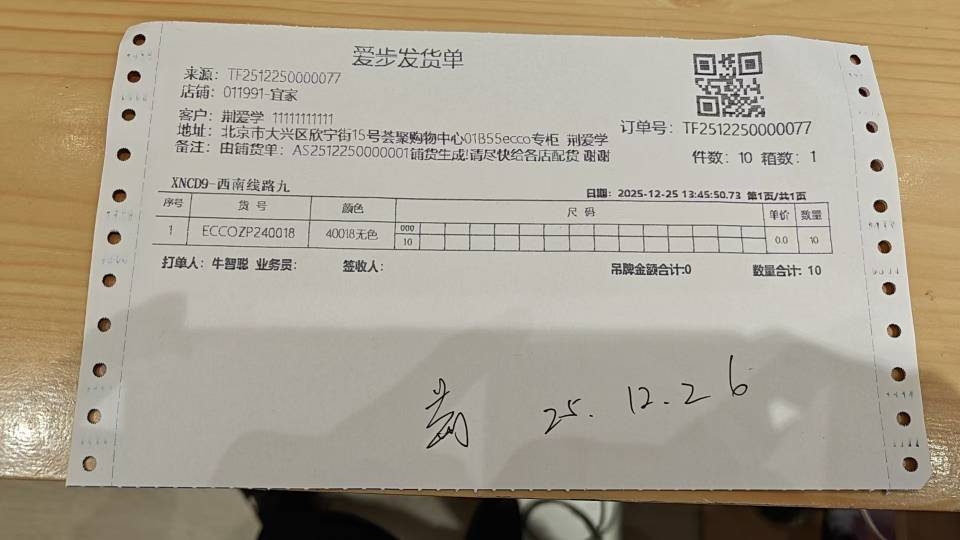 爱步发货单
来源: TF2512250000077
店铺: 011991-宜家
客户: 荆爱学 11111111111
地址: 北京市大兴区欣宁街15号荟聚购物中心01B55ecco专柜 荆爱学
订单号: TF2512250000077
备注: 由铺货单: AS2512250000001铺货生成!请尽快给各店配货 谢谢
件数: 10 箱数: 1
XNCD9-西南线路九
日期: 2025-12-25 13:45:50.73 第1页/共1页
序号 货号 颜色 尺码 单价 数量
1 ECCOZP240018 40018无色 000 10 0.0 10
打单人: 牛智聪 业务员: 签收人: 吊牌金额合计:0 数量合计: 10
25.12.26